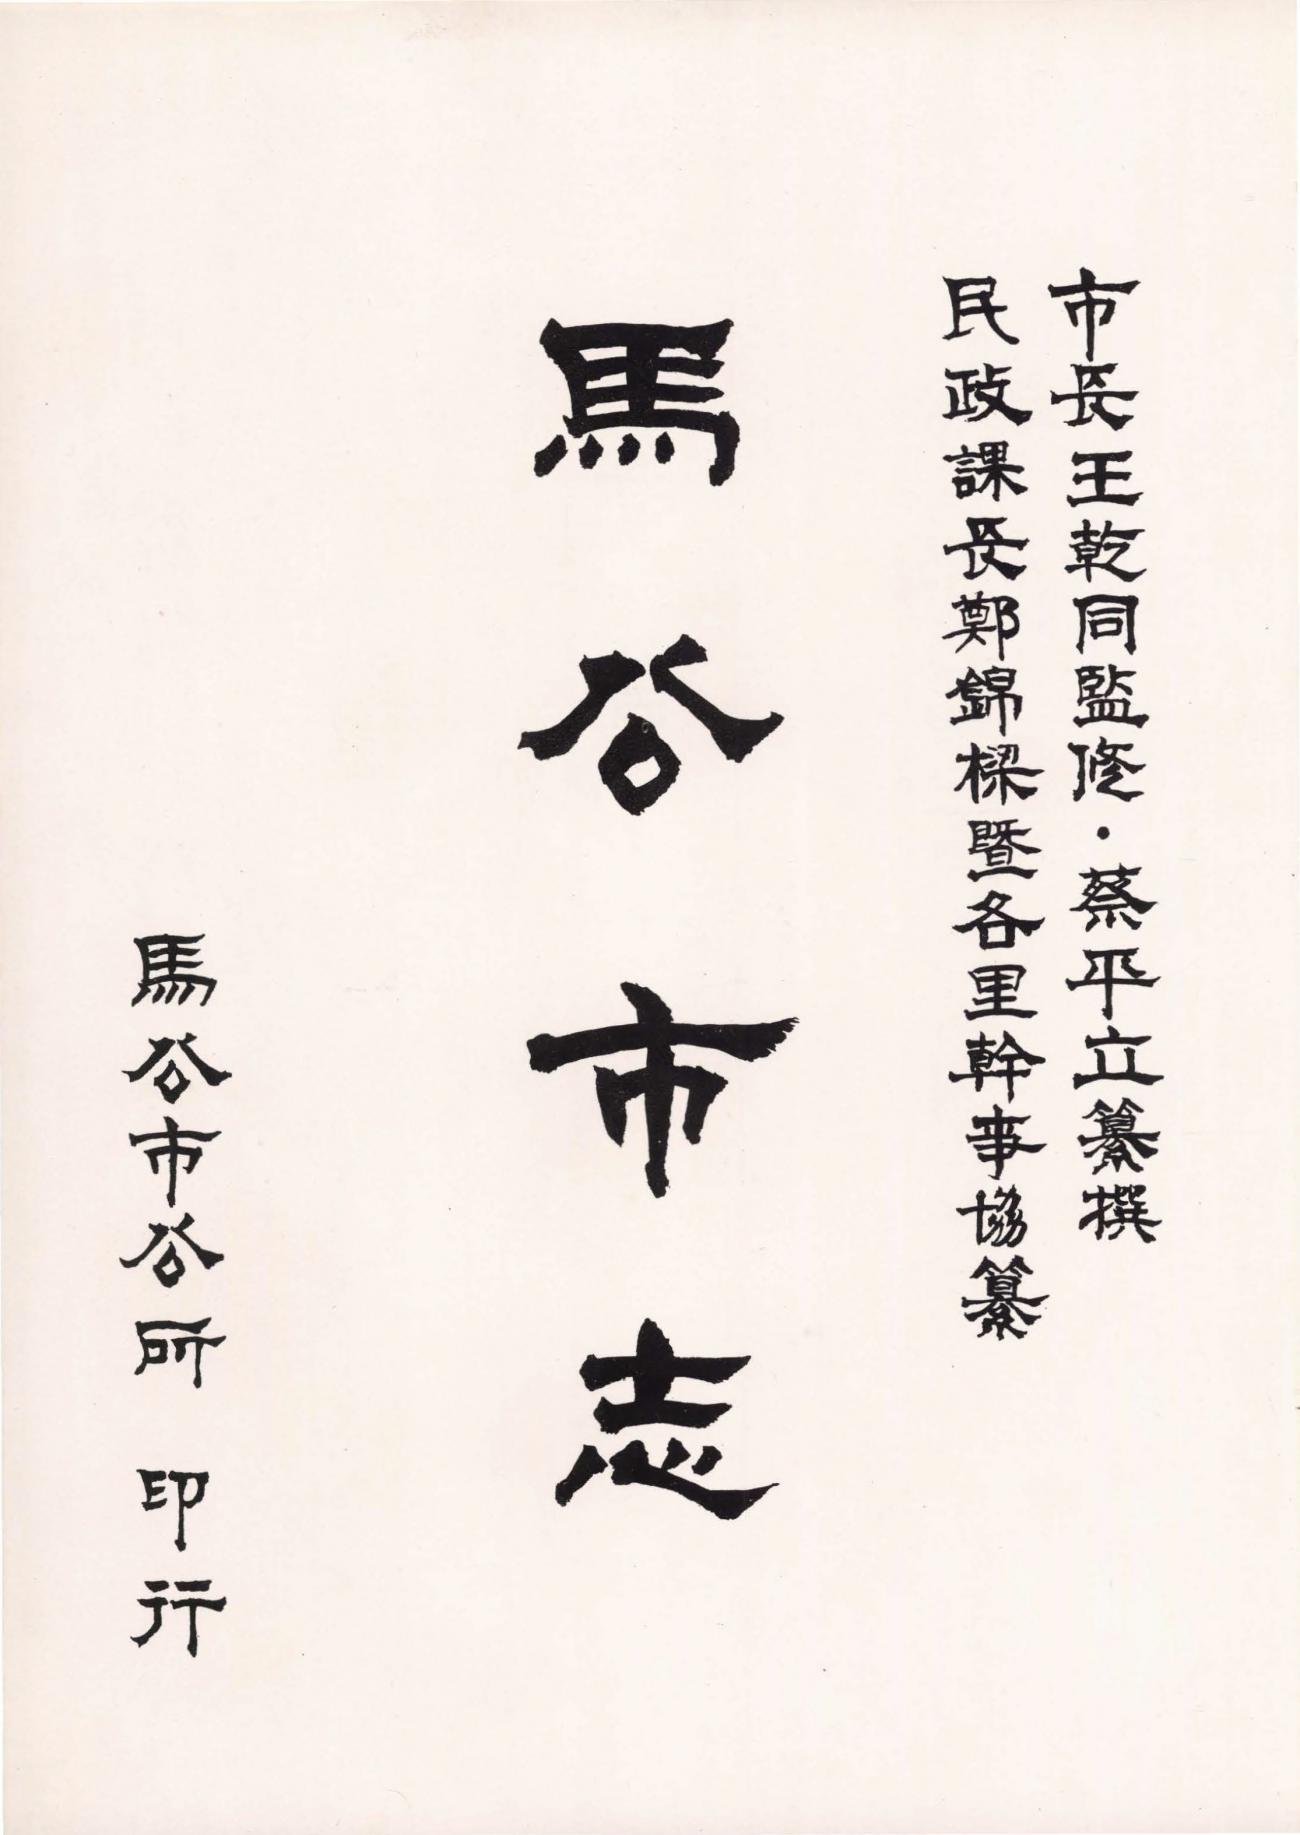 市長王乾同監修·蔡平立纂撰
民政課長鄭錦樑暨各里幹事協纂
馬公市志
馬公市公所 印行